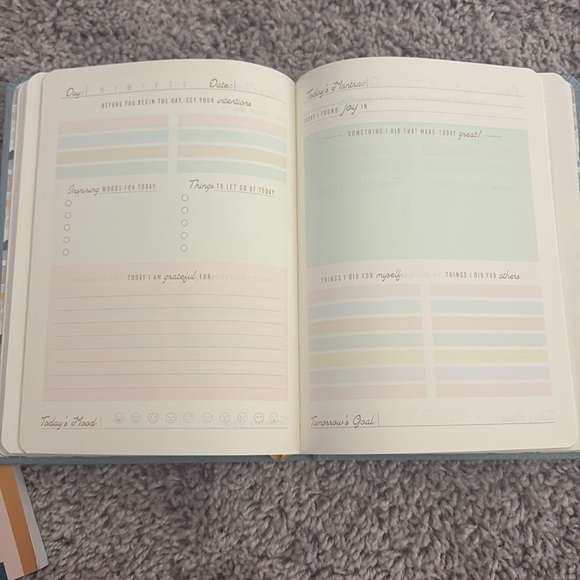 Day:
Date:
BEFORE YOU BEGIN THE DAY, SET YOUR intentions
Inspiring WORDS FOR TODAY
Things TO LET GO OF TODAY
TODAY I AM grateful FOR
Today's Mood
Today's Mantra:
TODAY I FOUND joy IN
SOMETHING I DID THAT MADE TODAY great!
THINGS I DID FOR myself
THINGS I DID FOR others
Tomorrow's Goal